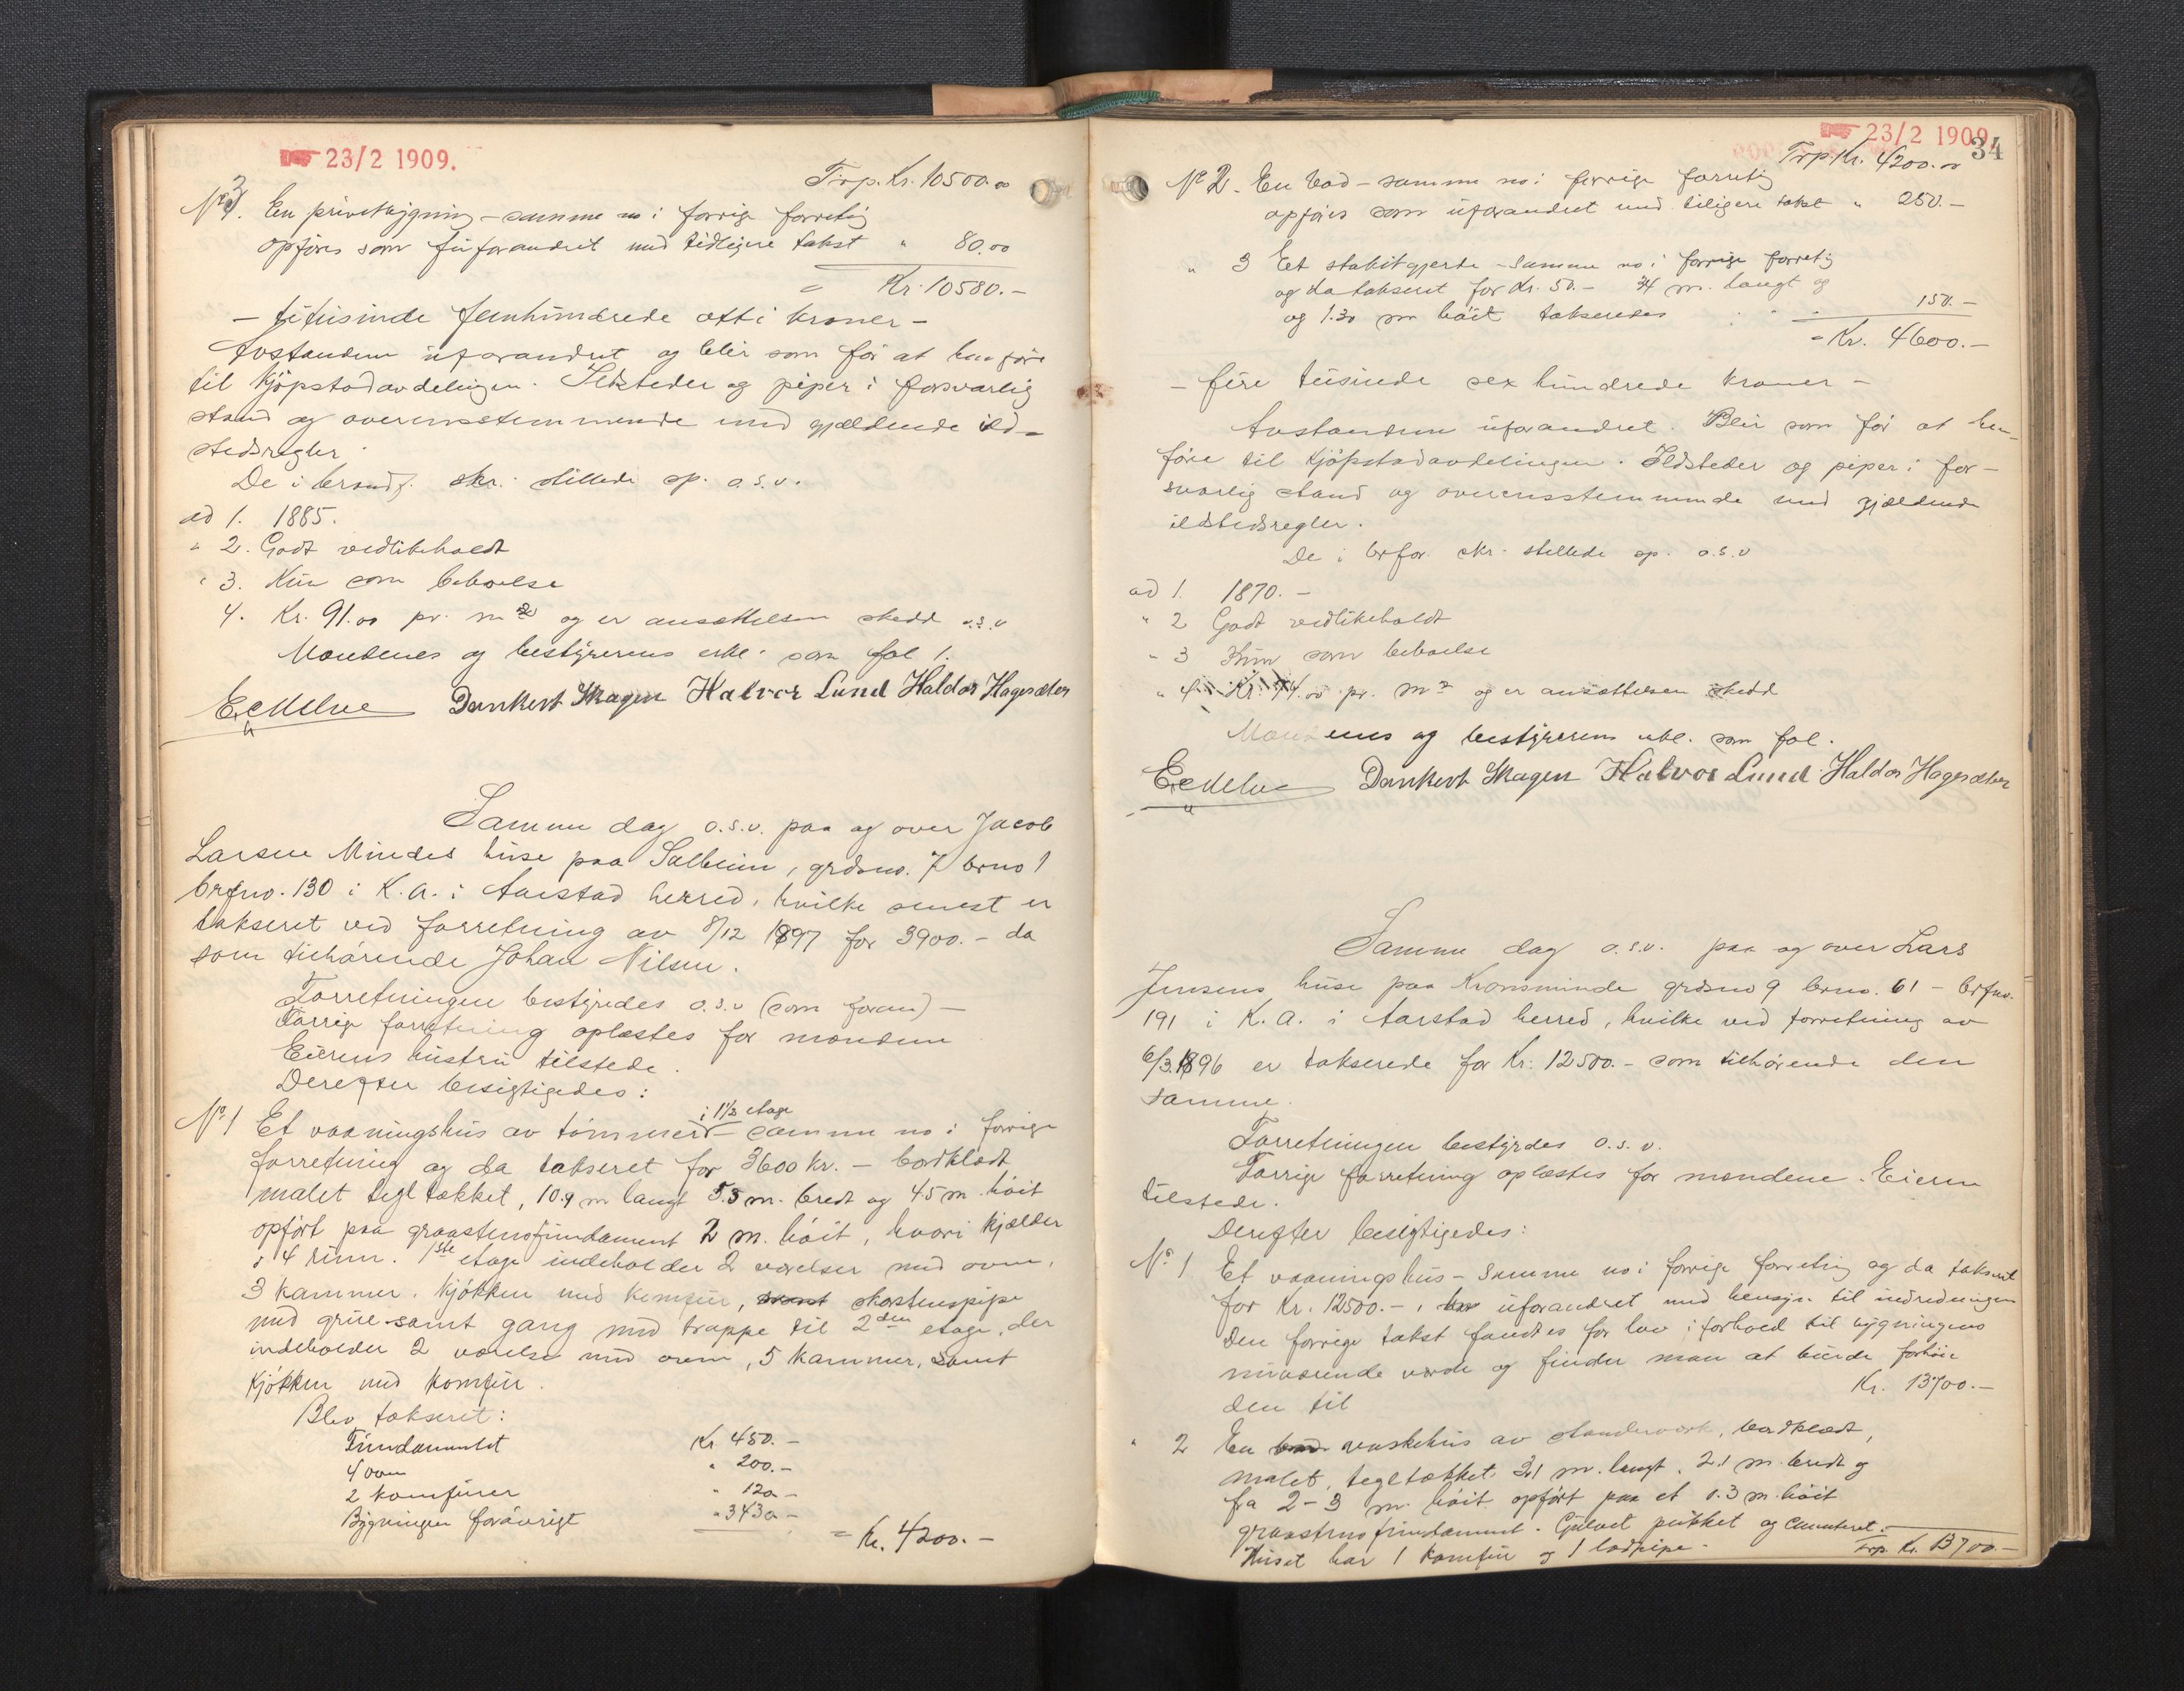 23/2 1909.
Trp. Kr. 10500.00
No 3. En privetbygning – samme no i forrige forretng
opføres som uforandret med tidligere takst " 80.00
= Kr. 10580.–
– titusinde femhundrede otti kroner –
Avstanden uforandret og blir som før at henføre
til kjøpstadavdelingen. Ildsteder og piper i forsvarlig
stand og overensstemmende med gjældende ild-
stedsregler.
De i brandf. skr. stillede sp. o.s.v.
ad 1. 1885.
" 2. Godt vedlikeholdt
" 3. Kun som beboelse
4. Kr. 91.00 pr. m2 og er ansættelsen skedd o.s.v
Mændenes og bestyrerens erkl. som fol 1.
Dankert Skagen Halvor Lund Haldor Hagesæter
Samme dag o.s.v. paa og over Jacob
Larsen Mindes huse paa Solheim, grdsno. 7 brno 1
brfno. 130 i K.A. i Aarstad herred, hvilke senest er
takseret ved forretning av 8/12 1897 for 3900.– da
som tilhørende Johan Nilsen.
Forretningen bestyredes o.s.v (som foran) –
Forrige forretning oplæstes for mændene
Eierens hustru tilstede.
Derefter besigtigedes:
i 1½ etage
No 1 Et vaaningshus av tømmer – samme no i forrige
forretning og da takseret for 3600 kr. – bordklædt,
malet tegltækket, 10.9 m langt 5.5 m. bredt og 4.5 m høit
opført paa graastensfundament 2 m. høit, hvori kjælder
i 4 rum. 1ste etage indeholder 2 værelser med ovn,
3 kammer. Kjøkken med komfur, skorstenspipe
med grue samt gang med trappe til 2den etage, der
indeholder 2 værelser med ovn, 5 kammer, samt
kjøkken med komfur.
Blev takseret:
Fundamentet Kr 450.–
4 ovne " 200.–
2 komfurer " 120–
Bygningen forøvrigt " 3430–
= Kr. 4200.–
23/2 1909.
34
Trp. Kr. 4200.00
No 2. En bod – samme no i forrige forretng
opføres som uforandret med tidligere takst " 250.–
" 3 Et stakitgjerde – samme no i forrige forretng
og da takseret for Kr. 50.– 34 m. langt og
og 1.30 m høit takseredes 150.–
= Kr. 4600.–
– fire tusinde sex hundrede kroner –
Avstanden uforandret. Blir som før at hen-
føre til kjøpstadavdelingen. Ildsteder og piper i for-
svarlig stand og overensstemmende med gjældende
ildstedsregler.
De i brfor. skr. stillede sp. o.s.v
ad 1. 1870.–
" 2 Godt vedlikeholdt
" 3 Kun som beboelse
" 4 Kr. 74.00 pr. m2 og er ansættelsen skedd
Mændenes og bestyrerens erkl. som fol.
Dankert Skagen Halvor Lund Haldor Hagesæter
Samme dag o.s.v. paa og over Lars
Jensens huse paa Kronsminde grdsno 9 brno. 61 – brfno.
191 i K.A. i Aarstad herred, hvilke ved forretning av
6/3 1896 er takserede for Kr. 12500.– som tilhørende den
samme.
Forretningen bestyrdes o.s.v.
Forrige forretning oplæstes for mændene. Eieren
tilstede.
Derefter besigtigedes:
No 1 Et vaaningshus – samme no i forrige forretng og da takseret
for Kr. 12500.–, uforandret med hensyn til indredningen
den forrige takst fandtes for lav i forhold til bygningens
nuværende værde og finder man at burde forhøie
den til Kr. 13700.–
" 2 En vaskehus av standerværk, bordklædt,
malet, tegltækket 3.1 m. langt, 2.1 m. bredt og
fra 2–3 m. høit opført paa et 0.3 m høit
graastensfundament. Gulvet pukket og cementeret.
Huset har 1 komfur og 1 lodpipe.
Trp. Kr. 13700.–